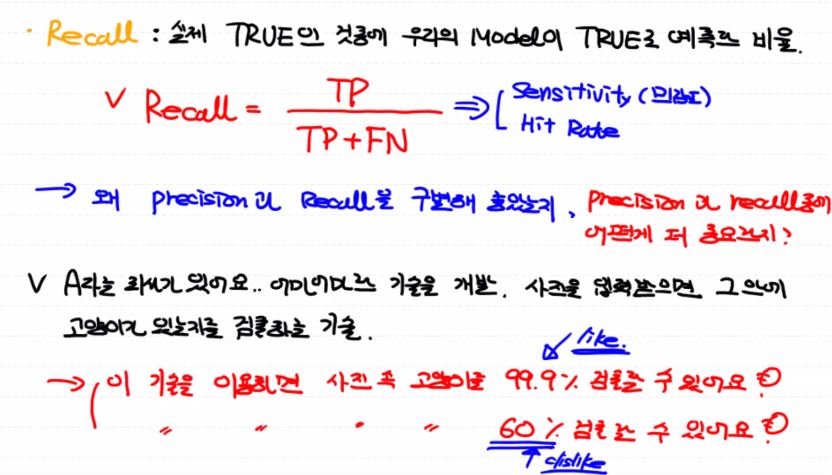 · Recall : 실제 TRUE인 것중에 우리의 Model이 TRUE로 예측한 비율.
V Recall = TP / TP+FN ⇒ [ Sensitivity (민감도)
Hit Rate
→ 왜 precision과 Recall을 구분해 놓았는지, Precision과 recall중에
어떤게 더 중요한지?
V A라는 회사가 있어요.. 어마어마한 기술을 개발. 사진을 입력받으면 그 안에
고양이가 있는지를 검출하는 기술.
like.
→ 이 기술을 이용하면 사진 속 고양이를 99.9% 검출할 수 있어요
〃 〃 〃 〃 60% 검출할 수 있어요
↑ dislike